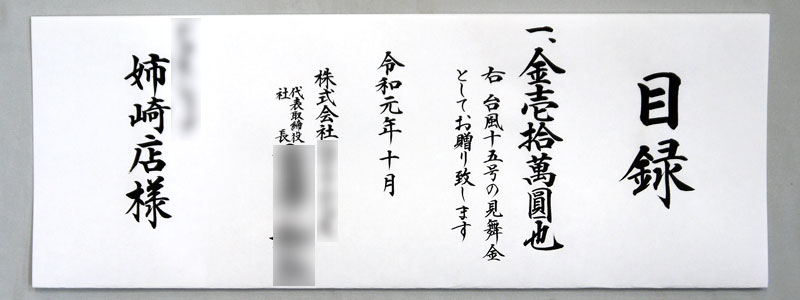 目録
一、金壱拾萬圓也
右 台風十五号の見舞金
としてお贈り致します
令和元年十月
株式会社
代表取締役
社長
姉崎店様